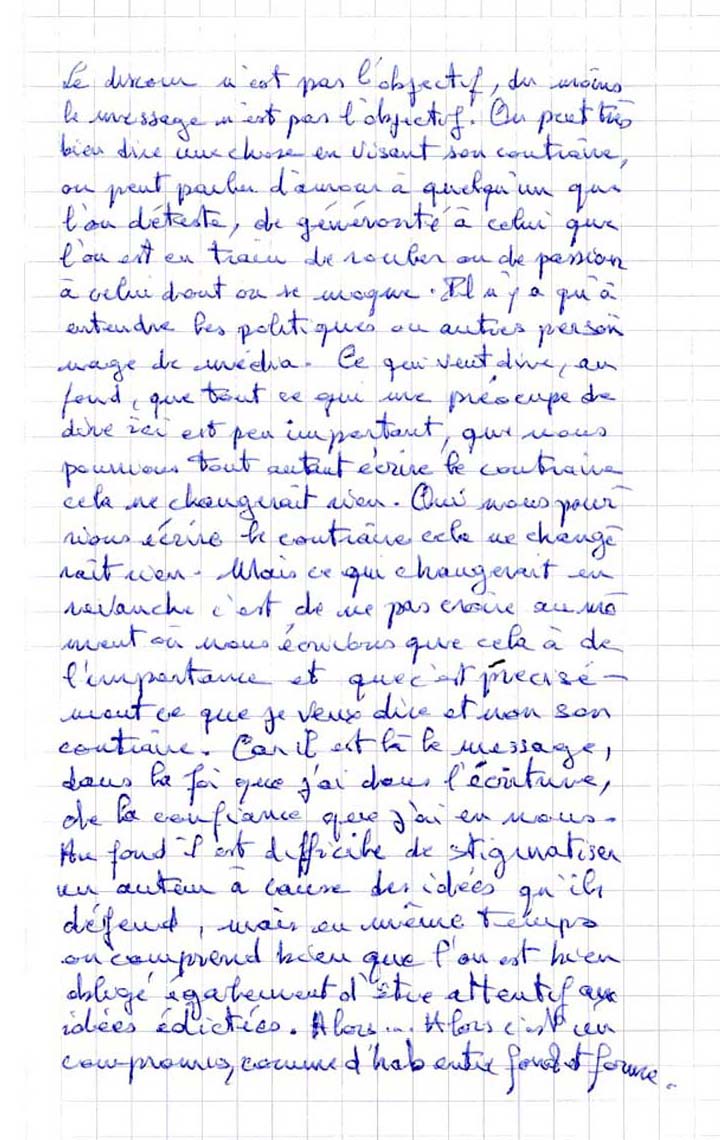 Le discour n'est pas l'objectif, du moins
le message n'est pas l'objectif. On peut très
bien dire une chose en visant son contraire,
on peut parler d'amour à quelqu'un que
l'on déteste, de générosité à celui que
l'on est en train de rouler ou de passion
à celui dont on se moque. Il n'y a qu'à
entendre les politiques ou autres person
nage de média. Ce qui veut dire, au
fond, que tout ce qui me préocupe de
dire ici est peu important, que nous
pourrions tout autant écrire le contraire
cela ne changerait rien. Oui nous pour
rions écrire le contraire cela ne change
rait rien. Mais ce qui changerait en
revanche c'est de ne pas croire au mo
ment où nous écrivons que cela à de
l'importance et que c'est précisé-
ment ce que je veux dire et non son
contraire. Car il est là le message,
dans la foi que j'ai dans l'écriture,
de la confiance que j'ai en nous.
Au fond il est difficile de stigmatiser
un auteur à cause des idées qu'ils
défend, mais en même temps
on comprend bien que l'on est bien
obligé également d'être attentif aux
idées édictées. Alors... Alors c'est un
compromis, comme d'hab entre fond et forme.